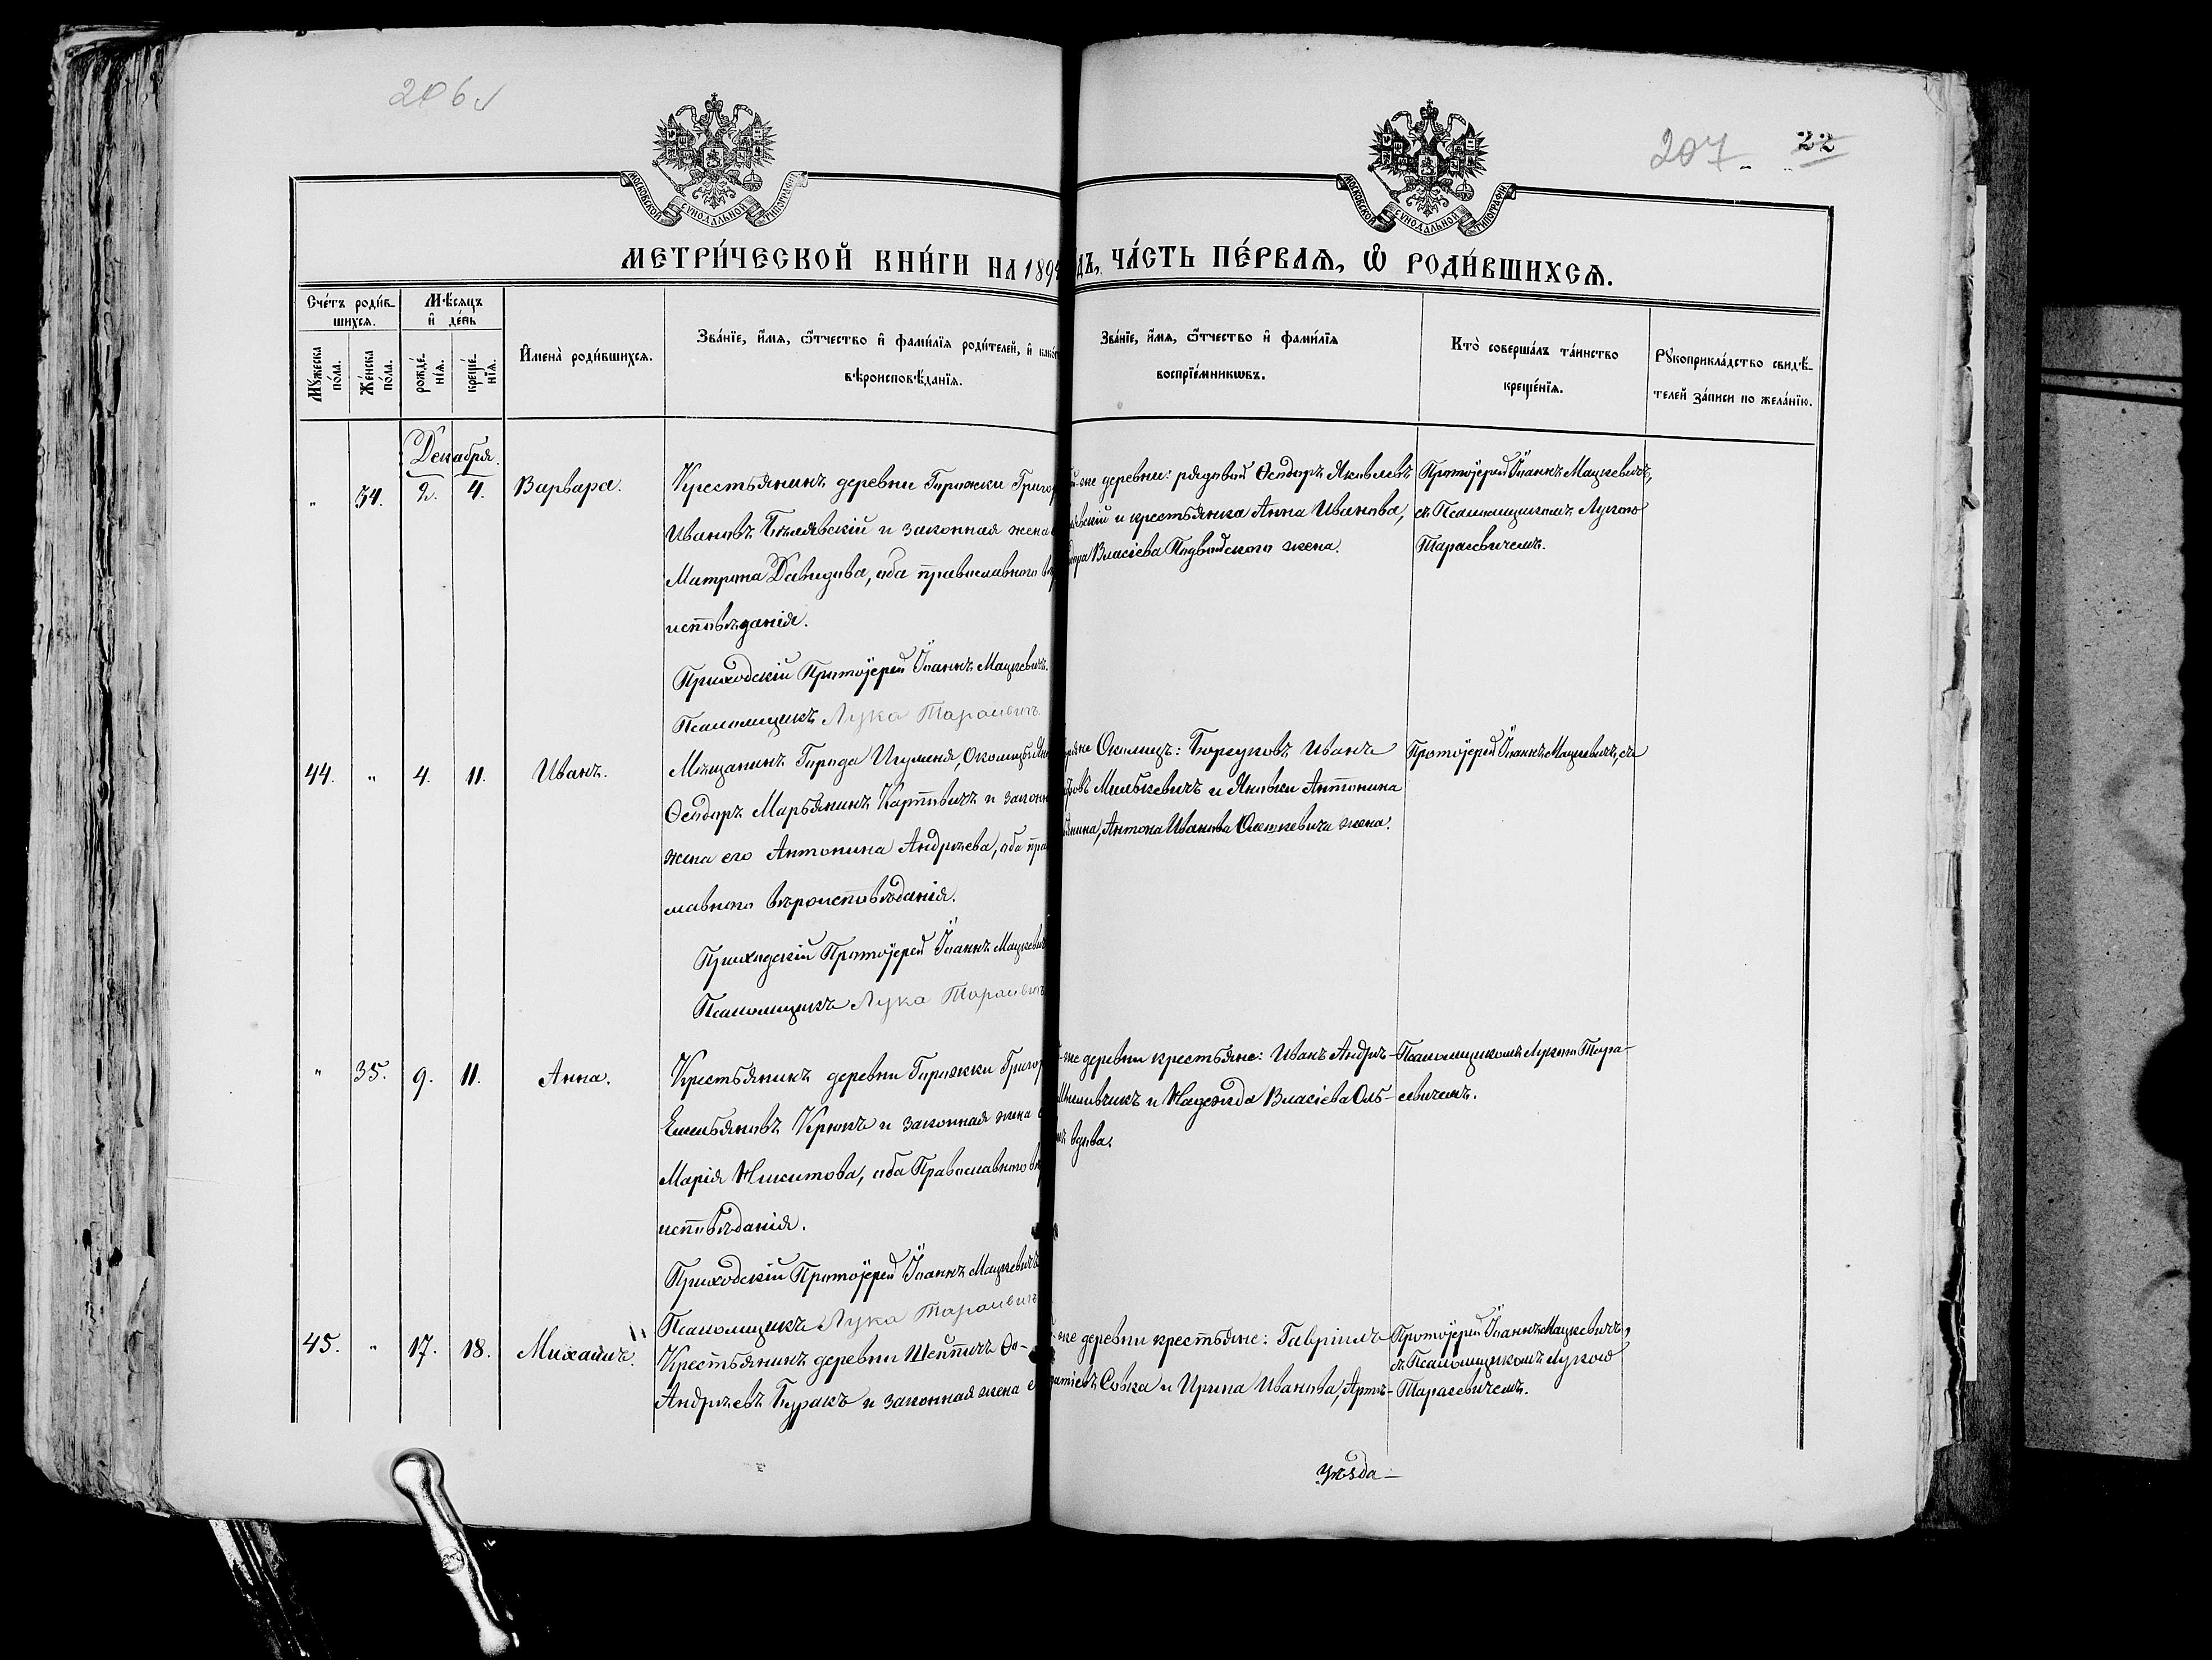 206
207
22
МОСКОВСКОЙ СѴНОДАЛЬНОЙ ТИПОГРАФІИ
МОСКОВСКОЙ СѴНОДАЛЬНОЙ ТИПОГРАФІИ
МЕТРИ́ЧЕСКОЙ КНИ́ГИ НА 189
ДЪ, ЧА́СТЬ ПЕ́РВАѦ, Ѽ РОДИ́ВШИХСѦ.
Сче́тъ роди́в-
шихсѧ.
Мꙋ́жеска по́ла.
Же́нска по́ла.
Мѣ́сѧцъ
и҆ де́нь
рожде́-
нїѧ.
креще́-
нїѧ.
И҆мена̀ роди́вшихсѧ.
Зва́нїе, и҆́мѧ, ѻ҆́тчество и҆ фами́лїѧ роди́телей, и҆ како
вѣроисповѣ́данїѧ.
Зва́нїе, и҆́мѧ, ѻ҆́тчество и҆ фами́лїѧ
воспрїе́мникѡвъ.
Кто̀ соверша́лъ та́инство
креще́нїѧ.
Рꙋкоприкла́дство свидѣ́-
телей за́писи по жела́нїю.
Декабря.
" 34. 2. 4. Варвара.
Крестьянинъ деревни Горожки Григор
Ивановъ Бѣлявскій и законная жена
Матрона Давидова, оба православного вѣ
исповѣданія.
Приходскій Протоіерей Іоаннъ Мацкевичъ.
Псаломщикъ Лука Тарасевичъ
же деревни: рядовой Ѳеодоръ Яковлевъ
лявскій и крестьянка Анна Иванова,
Власіева Подвойского жена.
Протоіерей Іоаннъ Мацкевичъ,
съ Псаломщикомъ Лукою
Тарасевичемъ.
44. " 4. 11. Иванъ.
Мѣщанинъ Города Игуменя, Околицы
Ѳеодоръ Марьянинъ Карповичъ и законн
жена его Антонина Андреева, оба пра
славного вѣроисповѣданія.
Приходскій Протоіерей Іоаннъ Мацкевич
Псаломщикъ Лука Тарасевичъ
Околицъ: Иванъ
Милькевичъ и Антонина
Антона Иванова Олешкевича жена.
Протоіерей Іоаннъ Мацкевичъ, съ
" 35. 9. 11. Анна.
Крестьянинъ деревни Горожки Григор
Емельяновъ Крюкъ и законная жена
Марія Никитова, оба Православного вѣ
исповѣданія.
Приходскій Протоіерей Іоаннъ Мацкевичъ
Псаломщикъ Лука Тарасевичъ
же деревни крестьяне: Иванъ Андре-
и Надежда Власіева Оль-
вдова.
Псаломщикомъ Лукою Тара-
севичемъ.
45. " 17. 18. Михаилъ.
Крестьянинъ деревни Шейпичъ Ѳо-
Андреевъ Буракъ и законная жена е
же деревни крестьяне: Гавріилъ
Совка и Ирина Иванова, Арте-
Протоіерей Іоаннъ Мацкевичъ,
съ Псаломщикомъ Лукою
Тарасевичемъ.
Уѣзда